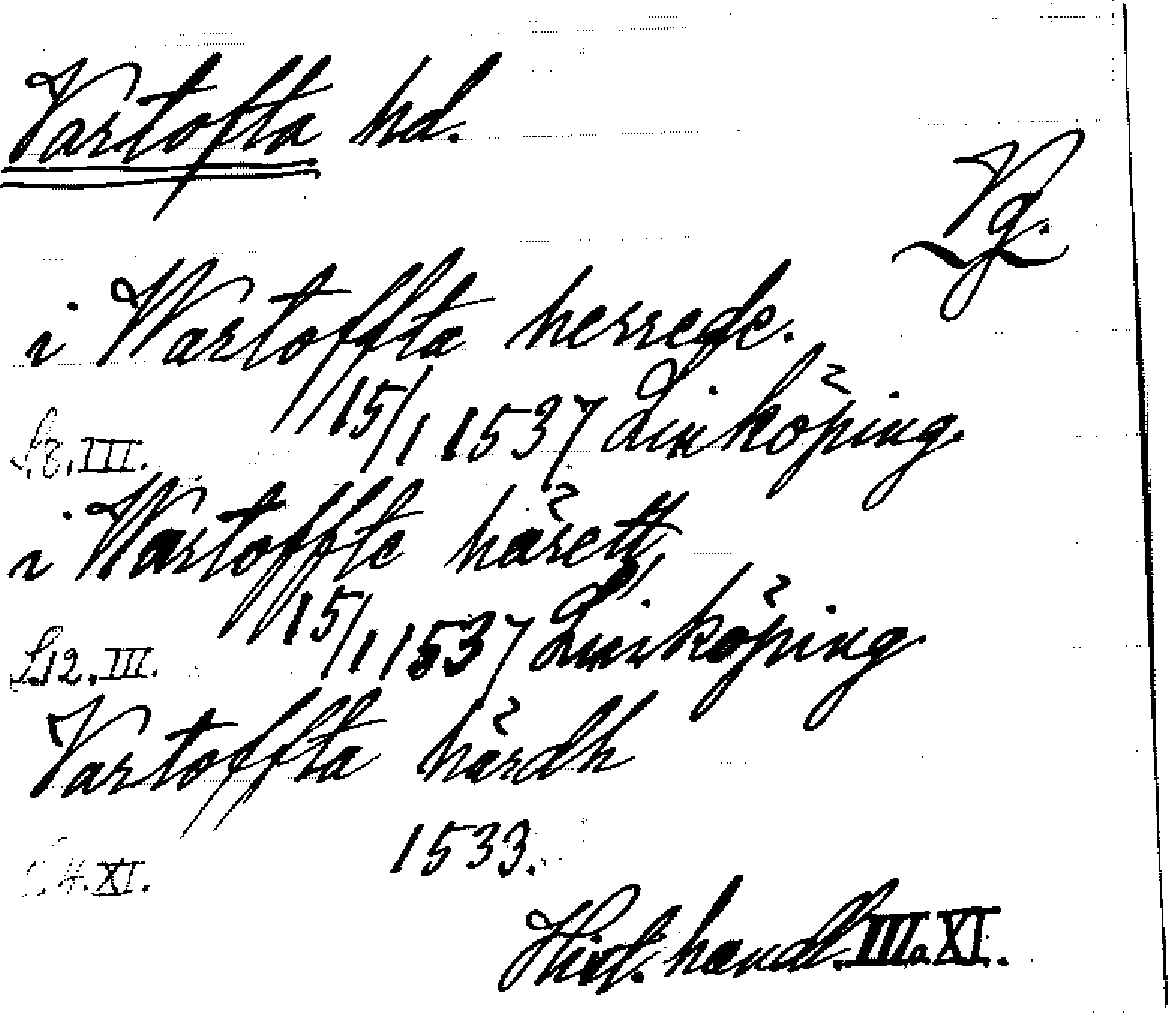 Vartofta hd.
Vg.
i Wartoffta herrede.
15/1 1537 Linköping.
S.8. III.
i Wartoffte härett,
15/1 1537 Linköping
S.12. III.
Vartoffta härdh
1533.
S.4. XI.
Hist. handl. III o. XI.